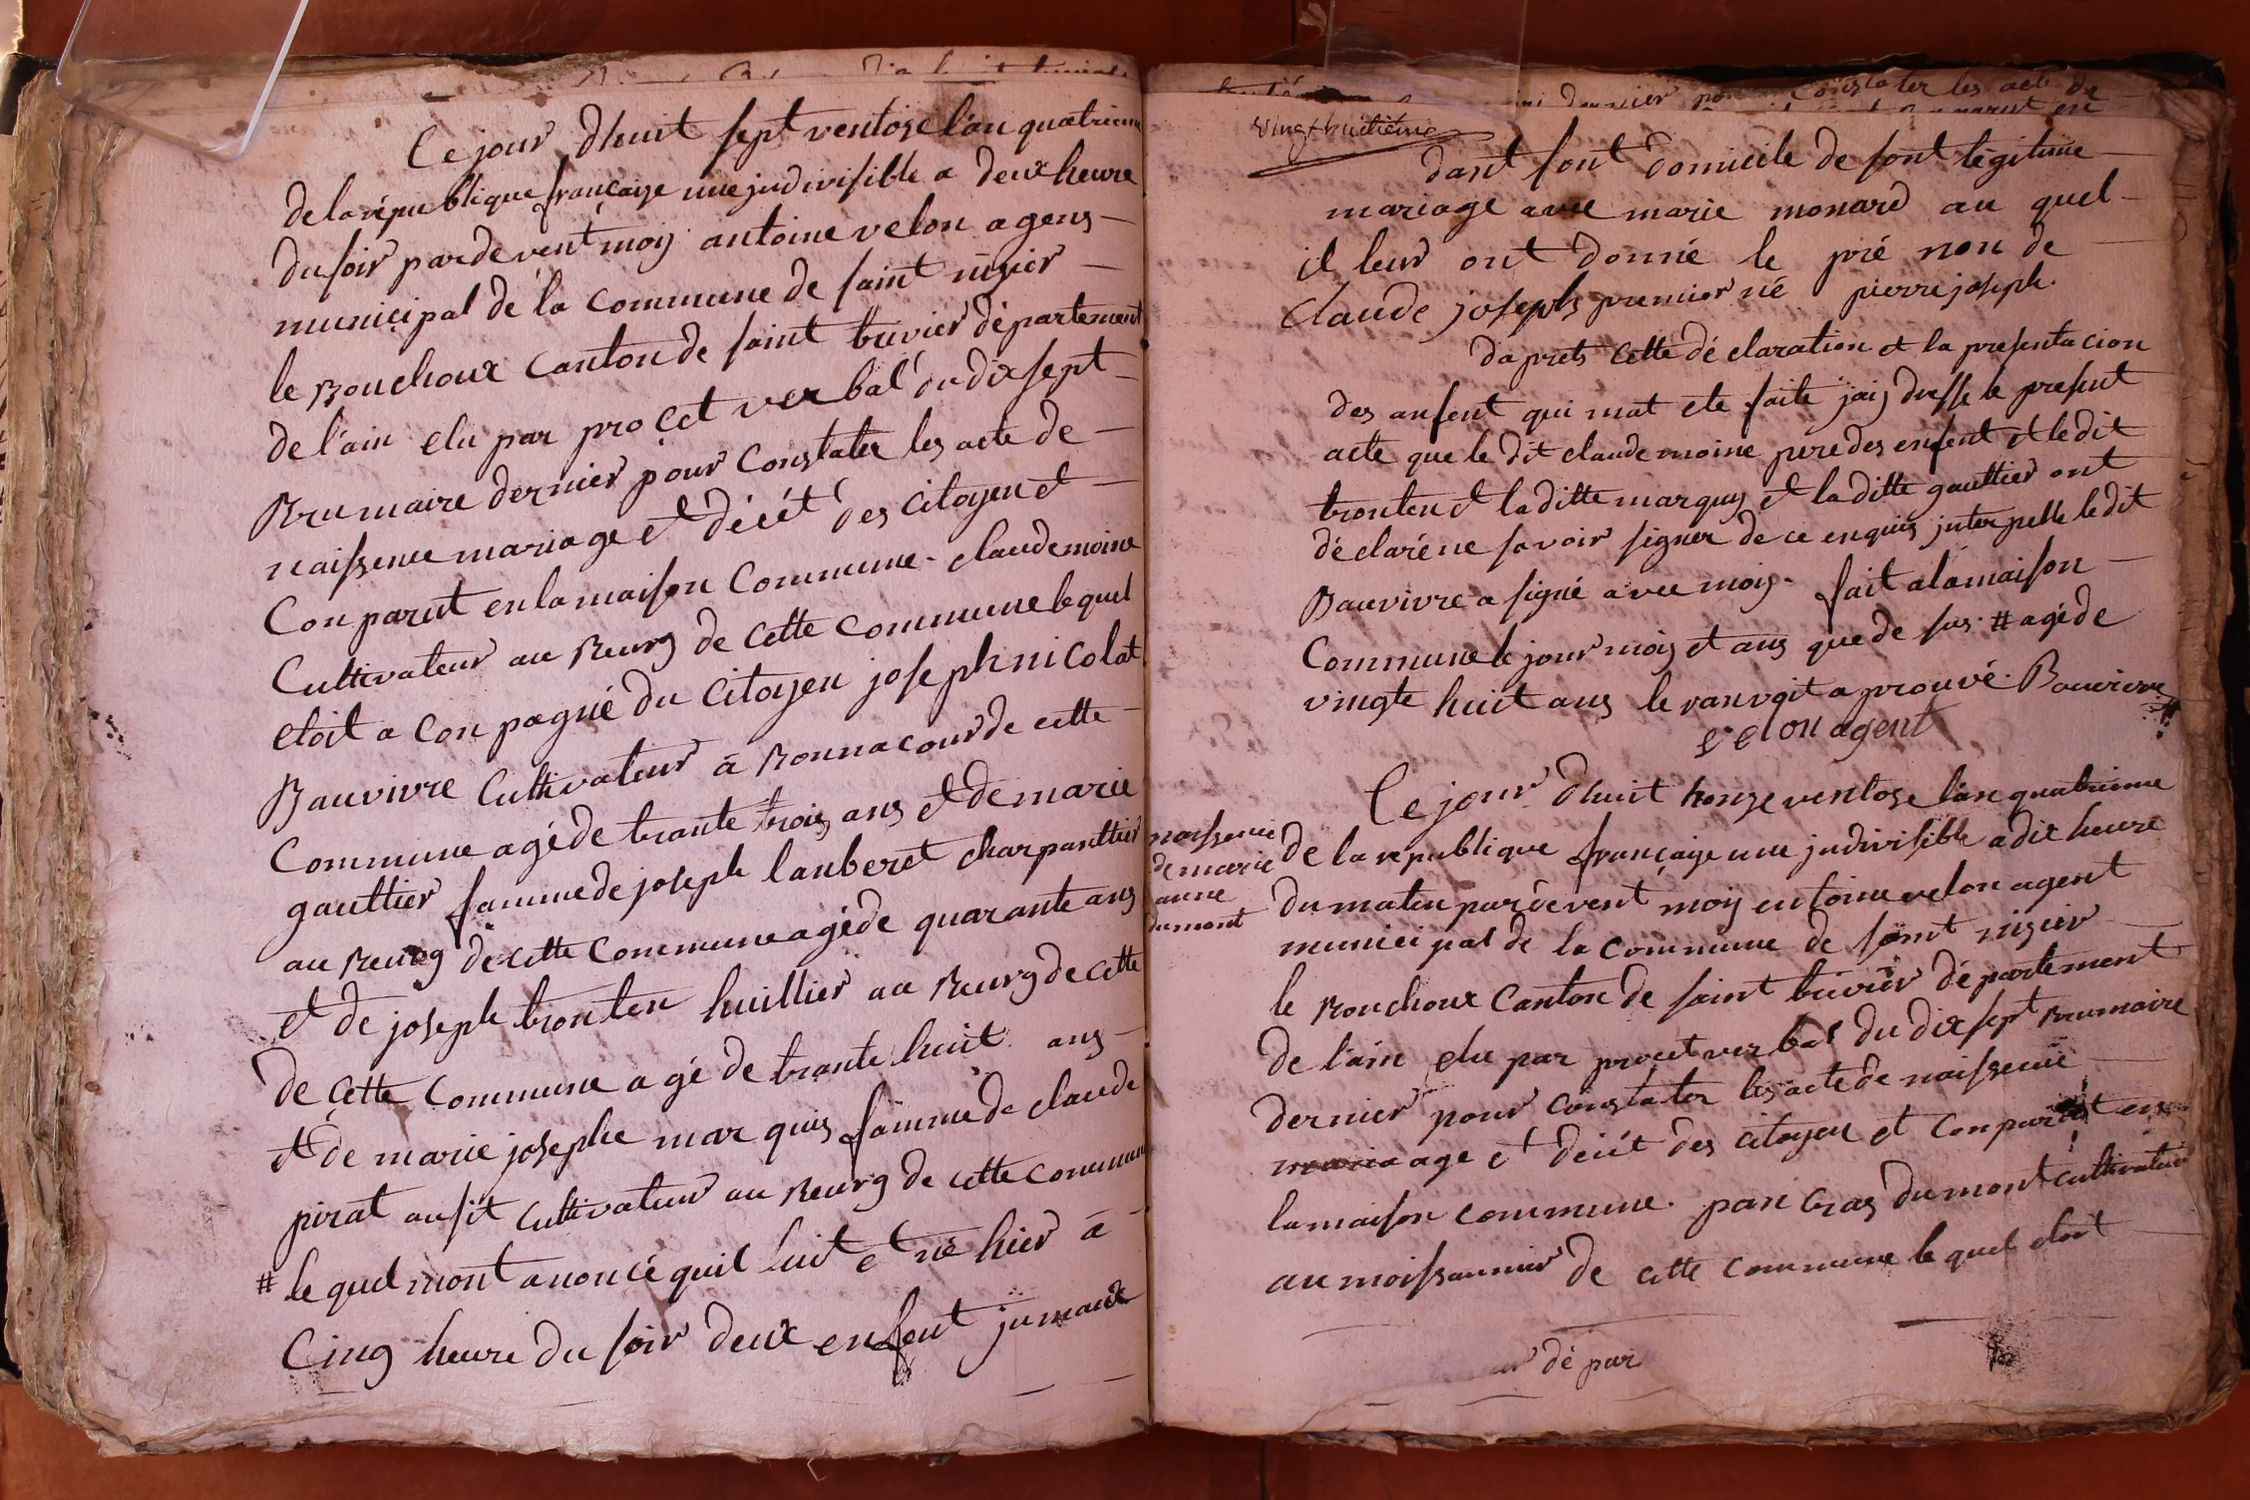 Ce jour dhuit sept ventose l'an quatrieme
de la république française une jndivisible a deux heure
du soir pardevent moy antoine velon agens
municipal de la commune de saint nizier
le Bouchoux canton de saint trivier département
de l'ain elu par procet verbal du dix sept
Brumaire dernier pour constater les acte de
naissence mariage et décét des citoyen et
Conparut en la maison Commune. claude moine
Cultivateur au Bourg de cette commune le quel
etoit a conpagné du citoyen joseph nicolat
Bauvivre Cultivateur à Bonnacour de cette
commune agé de trante trois ans et de marie
gauttier famme de joseph lanberet charpanttier
au Bourg de cette commune agé de quarante ans
et de joseph tronten huillier au Bourg de cette
de cette commune agé de trante huit ans
et de marie josephe marquis famme de claude
pirat ausit cultivateur au Bourg de cette commune
# le quel mont anoncé quil luit et né hier à
Cinq heure du soir deux enfent jumaux
constater les acte de
vingt huitième
dant sont domicile de sont légitime
mariage avec marie monard au quel
il leur ont donné le pré non de
Claude josephs premier né pierre joseph.
daprets cette déclaration et la presentacion
des anfent qui mat ete faite jaij dresse le present
acte que le dit claude moine pere des enfent et le dit
tronten et la ditte marquis et la ditte gauttier ont
déclaré ne savoir signer de ce enquis jnterpelle le dit
Bauvivre a signé avec moij. fait a la maison
Commune le jour mois et ans que de sus. # agé de
vingte huit ans le ranvoit aprouvé. Bauvivre
velon agent
Ce jour dhuit honze ventose l'an quatrieme
naissence
de marie
anne
dumont
de la republique française une jndivisible a dix heure
du matin pardevent moij entoine velon agent
municipal de la commune de saint nizier
le Bouchoux Canton de saint trivier département
de l'ain elu par procet verbal du dix sept Brumaire
dernier pour constater les acte de naissence
mariage et décét des citoyen et conparut en
la maison commune. pancras dumont cultivateur
au moissonnier de cette commune le quel etoit
dé par